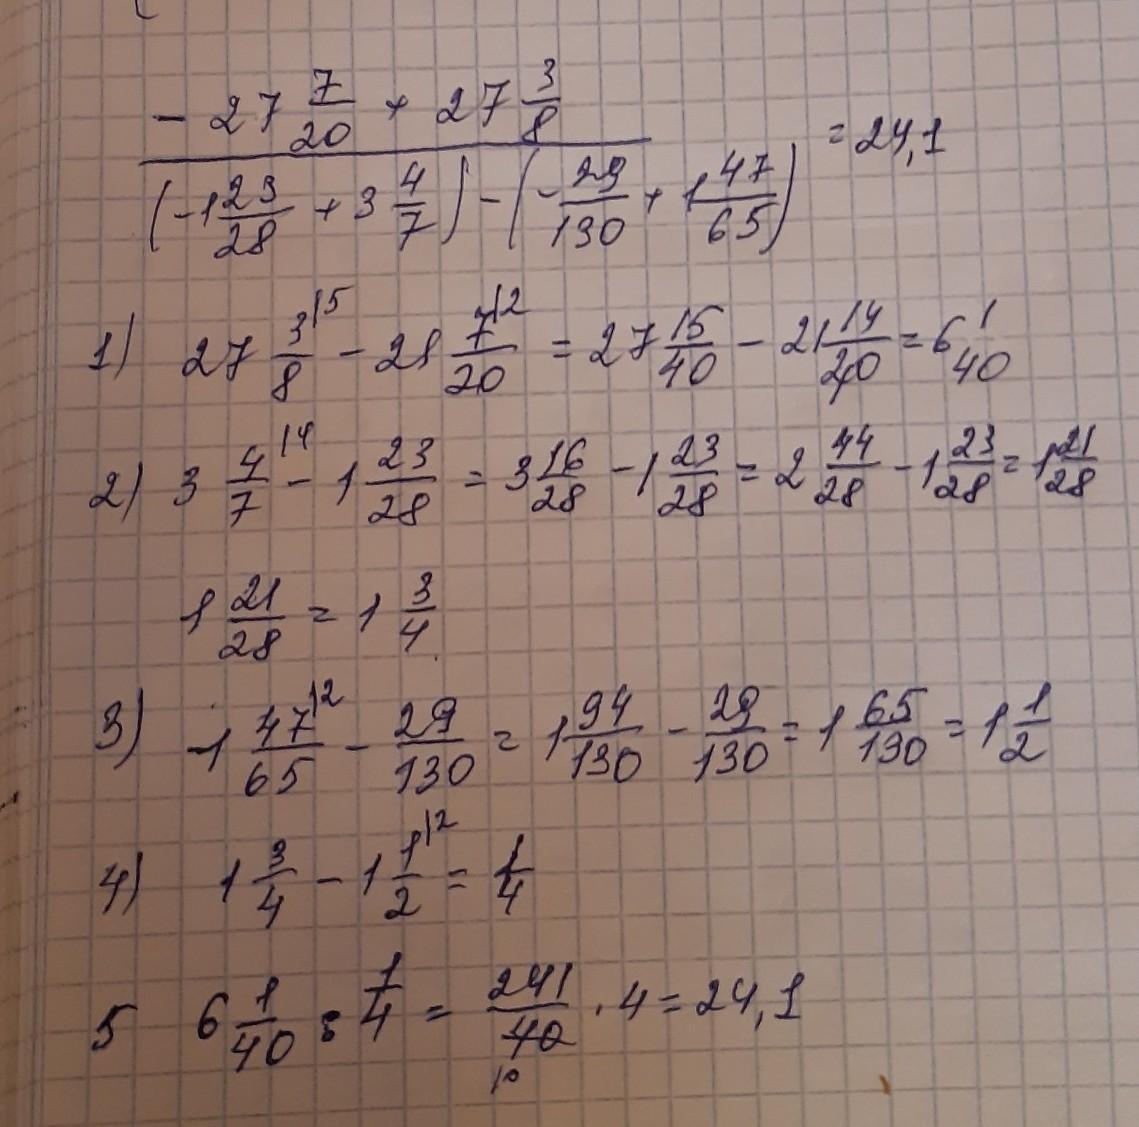 (- 27 7/20 + 27 3/8) / ((-1 23/28 + 3 4/7) - (- 29/130 + 1 47/65)) = 24,1
1) 27 3/8 |5 - 21 7/20 |2 = 27 15/40 - 21 14/40 = 6 1/40
2) 3 4/7 |4 - 1 23/28 = 3 16/28 - 1 23/28 = 2 44/28 - 1 23/28 = 1 21/28
1 21/28 = 1 3/4
3) 1 47/65 |2 - 29/130 = 1 94/130 - 29/130 = 1 65/130 = 1 1/2
4) 1 3/4 - 1 1/2 |2 = 1/4
5 6 1/40 : 1/4 = 241/40 · 4 = 24,1
10